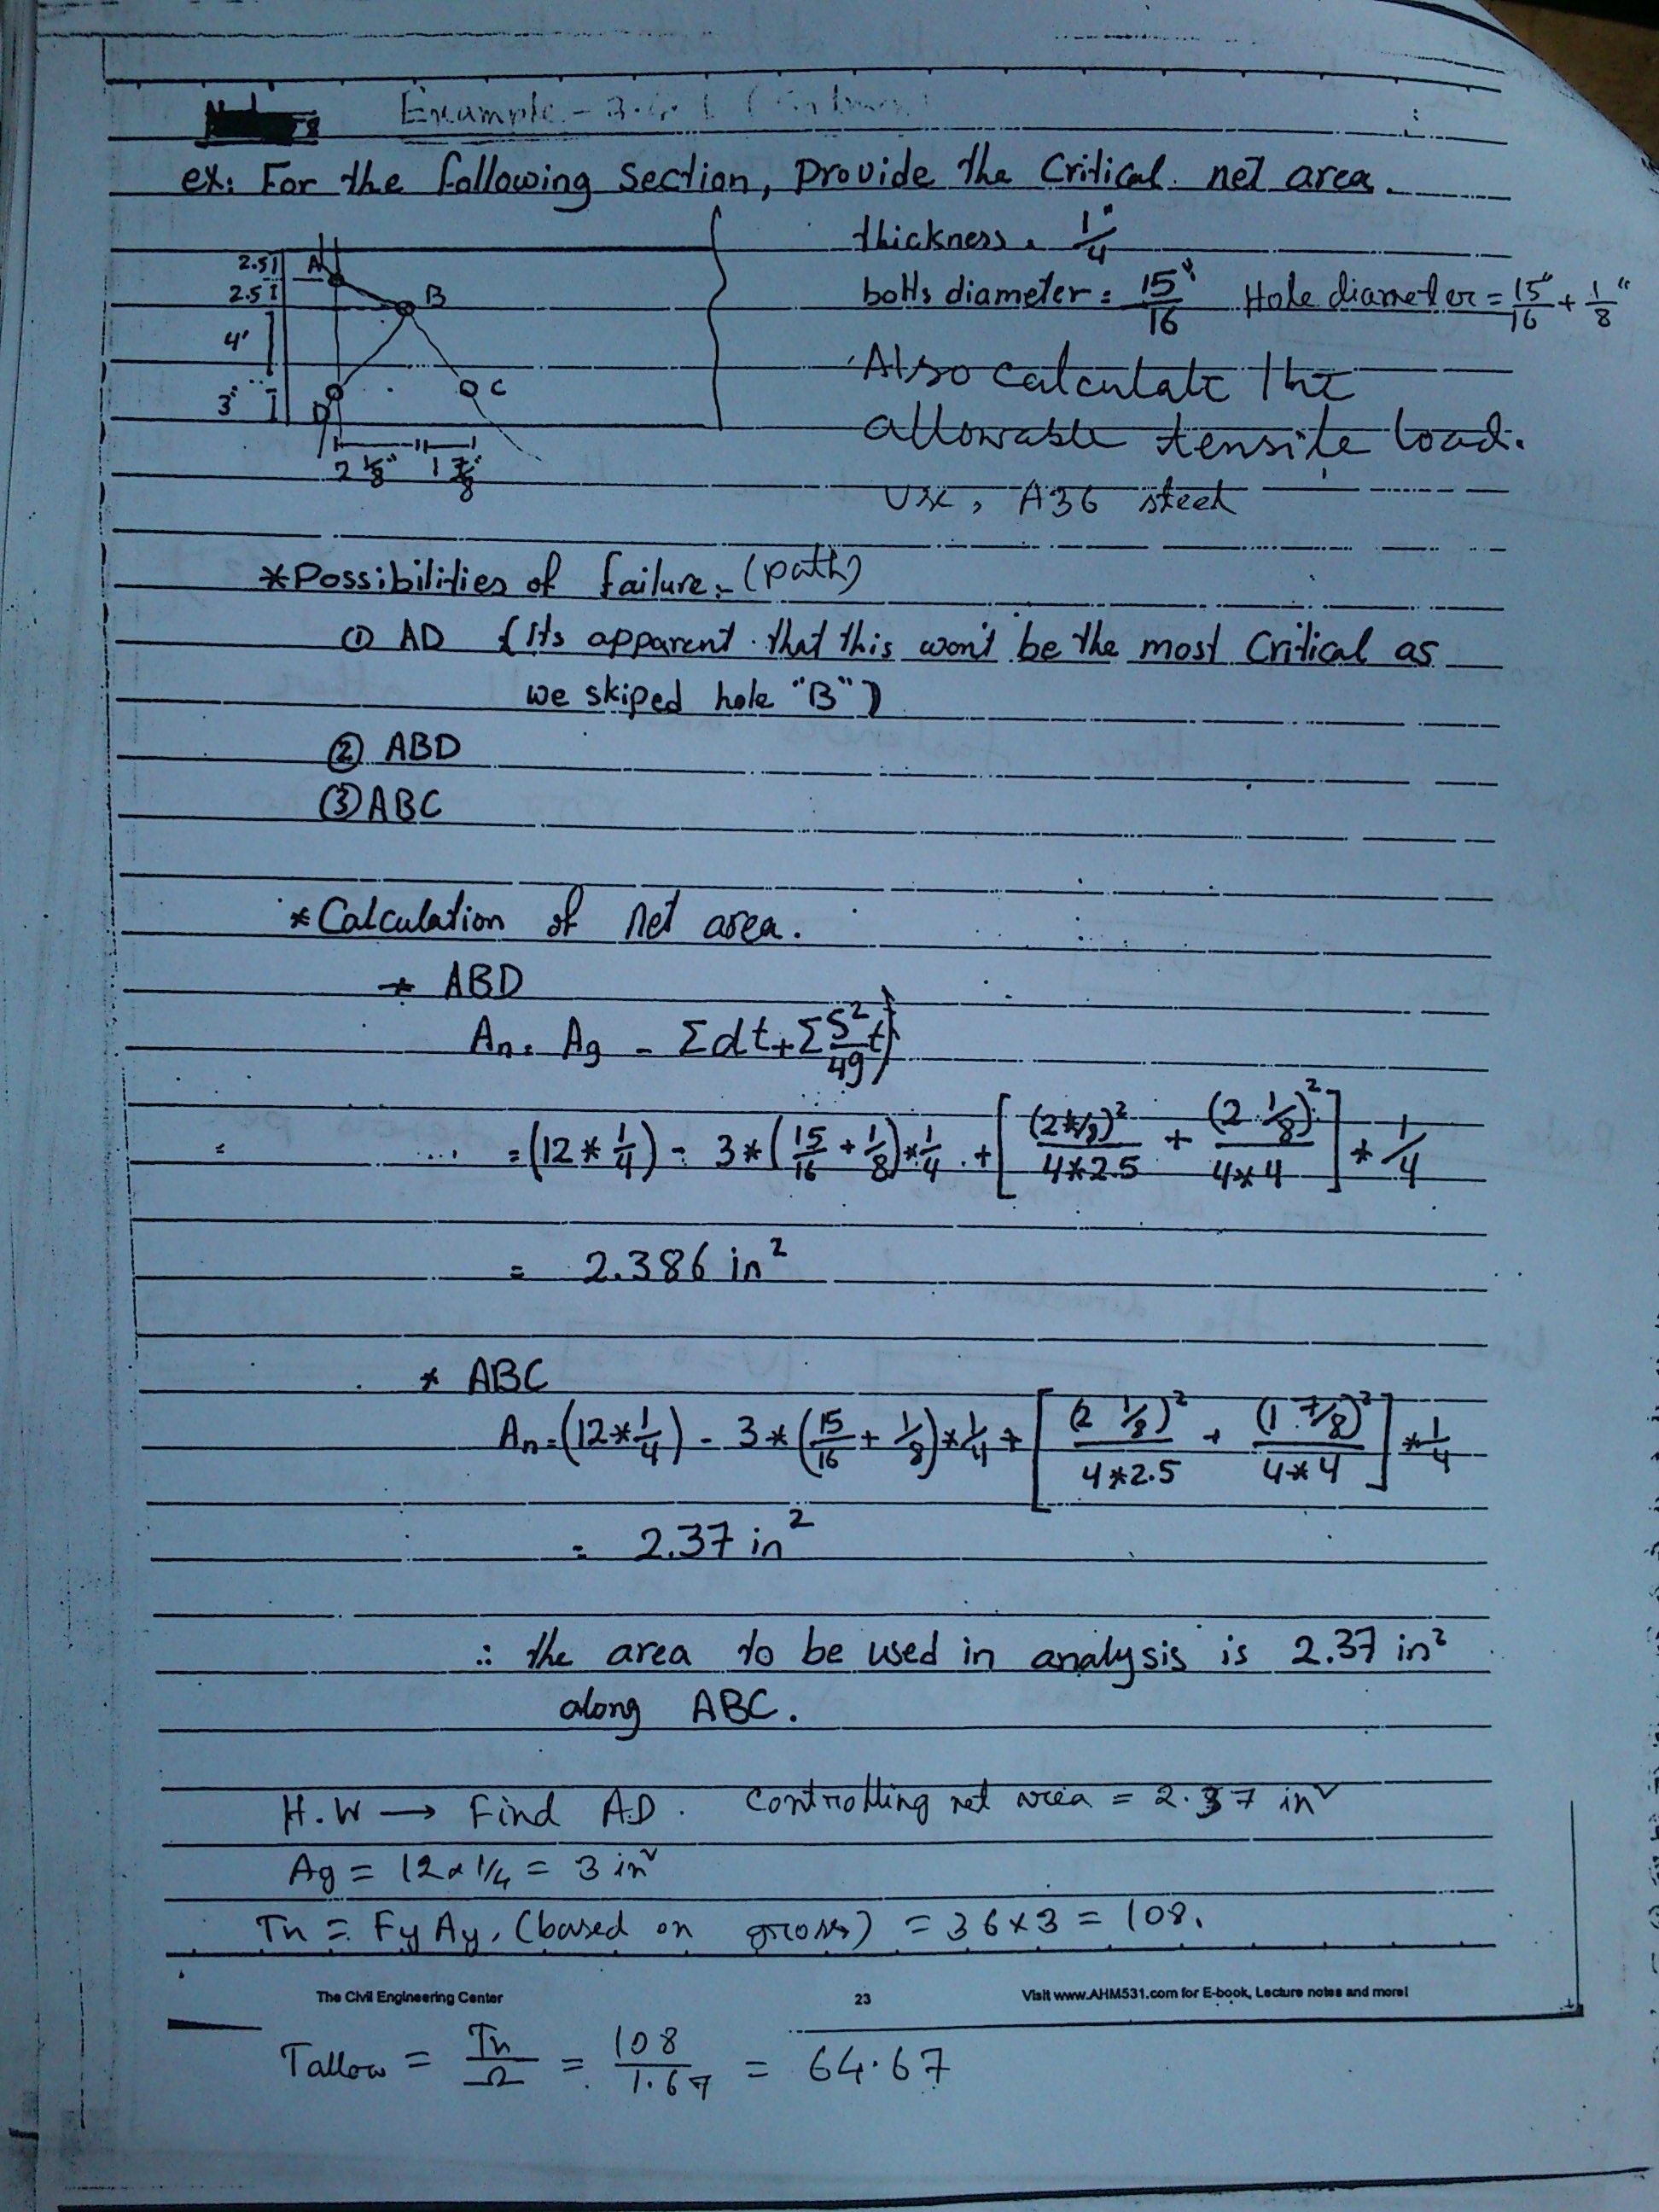 Example - 3.4.1
ex: For the following Section, Provide the Critical net area.
thickness = 1/4"
bolts diameter = 15/16" Hole diameter = 15/16" + 1/8"
Also calculate the
allowable tensile load.
Use, A36 steel
2.5
2.5
4'
3"
A
B
C
D
2 1/8" 1 7/8"
*Possibilities of failure:- (path)
① AD (its apparent that this won't be the most Critical as
we skiped hole "B")
② ABD
③ ABC
* Calculation of net area.
→ ABD
An = Ag - Σdt + Σ S²/4g t
= (12 * 1/4) - 3 * (15/16 + 1/8) * 1/4 + [(2 1/8)²/4*2.5 + (2 1/8)²/4*4] * 1/4
= 2.386 in²
* ABC
An = (12*1/4) - 3 * (15/16 + 1/8) * 1/4 + [(2 1/8)²/4*2.5 + (1 7/8)²/4*4] * 1/4
= 2.37 in²
∴ the area to be used in analysis is 2.37 in²
along ABC.
H.W → Find AD. Controlling net area = 2.37 in²
Ag = 12 x 1/4 = 3 in²
Tn = Fy Ay, (based on gross) = 36 x 3 = 108.
The Civil Engineering Center 23 Visit www.AHM531.com for E-book, Lecture notes and more!
Tallow = Tn/Ω = 108/1.67 = 64.67